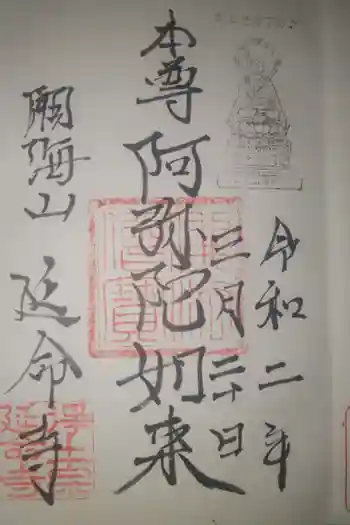 令和二年
三月二十日
本尊 阿弥陀如来
願海山 延命寺